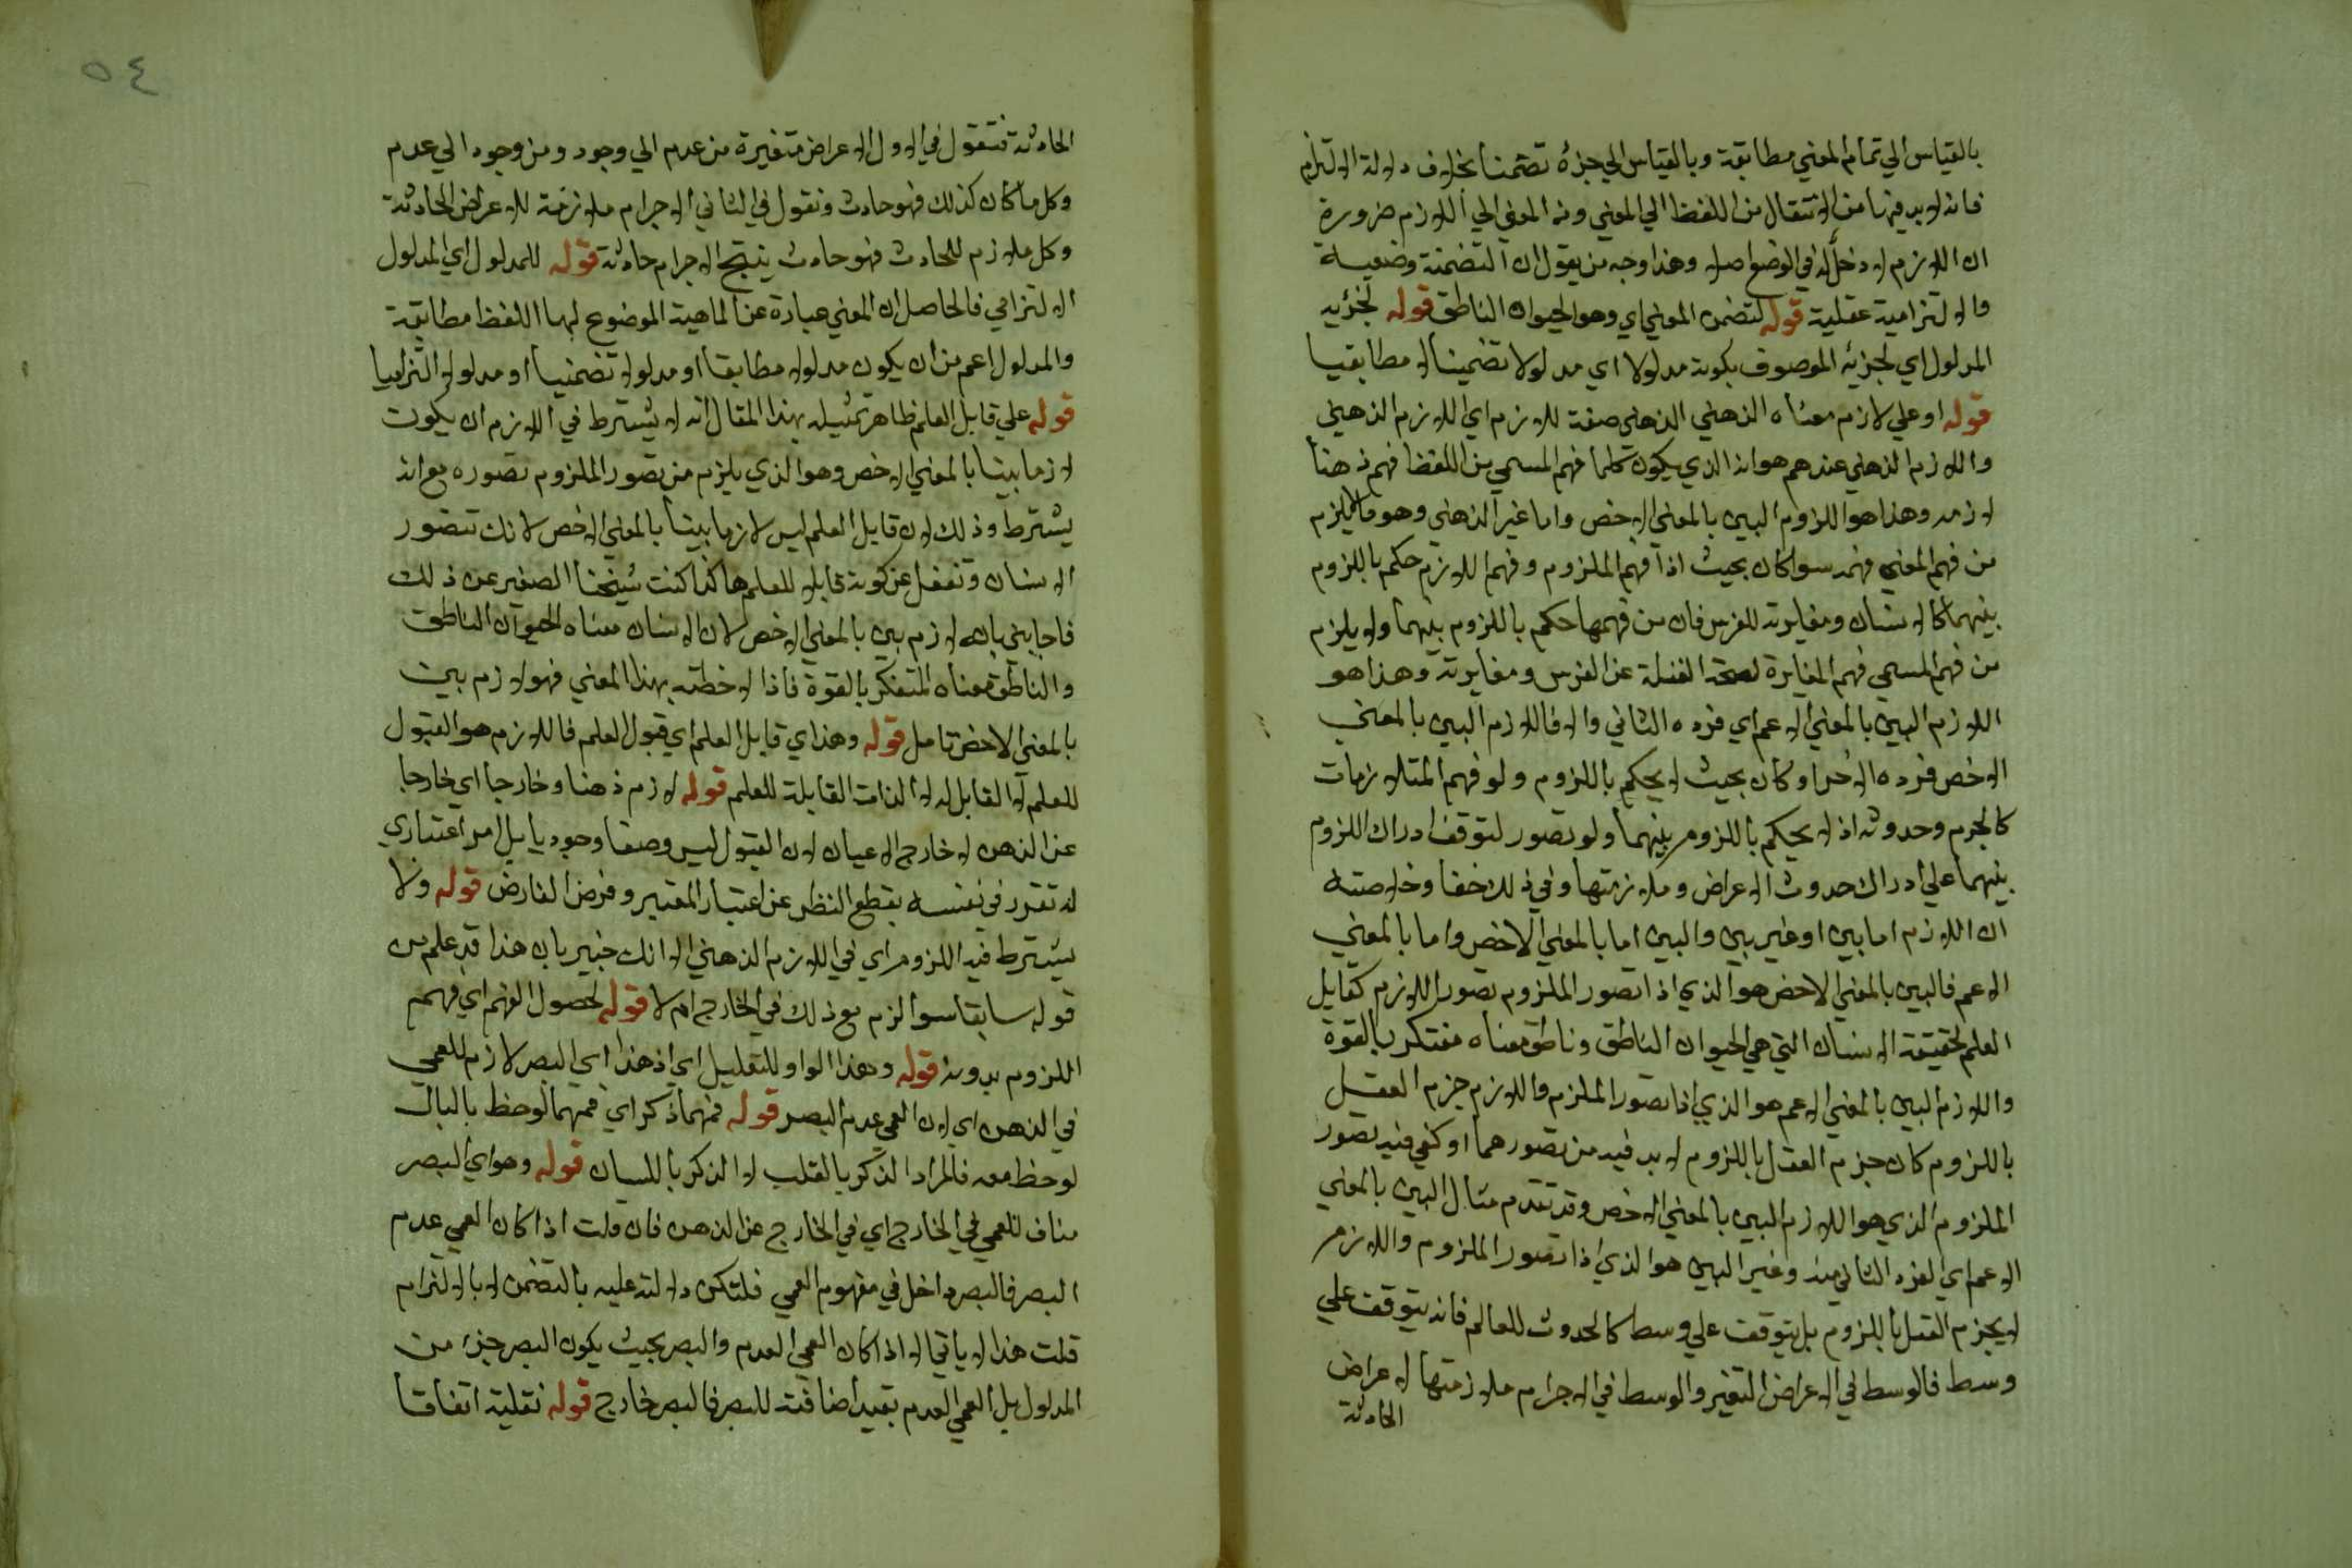 بالقياس الي تمام المعني مطابقة وبالقياس الي جزئه تضمنا بخلاف دلالة الالتزام
فانه لابد فيها من الانتقال من اللفظ الي المعني ومن المعني الي اللازم ضرورة
ان اللازم لا دخل له في الوضع اصلا وهذا وجه من يقول ان التضمنية وضعية
والالتزامية عقلية قوله لتضمن المعني اي وهو الحيوان الناطق قوله لجزئيه
المدلول اي لجزئيه الموصوف بكونه مدلولا اي مدلولا تضمنيا لا مطابقيا
قوله او علي لازم معناه الذهني الذهني صفة للازم اي اللازم الذهني
واللازم الذهني عندهم هو انه الذي يكون كلما فهم المسمي من اللفظ فهم ذهنا
لازمه وهذا هو اللزوم البين بالمعني الاخص واما غير الذهني وهو ما لا يلزم
من فهم المعني فهمه سوا كان بحيث اذا فهم الملزوم وفهم اللازم حكم باللزوم
بينهما كالانسان ومغايرته للفرس فان من فهمها حكم باللزوم بينهما ولا يلزم
من فهم المسمي فهم المغايرة لصحة الغفلة عن الفرس ومغايرته وهذا هو
اللازم البين بالمعني الاعم اي فرده الثاني والا فاللازم البين بالمعني
الاخص فرده الاخر او كان بحيث لا يحكم باللزوم ولو فهم المتلازمات
كالجرم وحدوثه اذ لا يحكم باللزوم بينهما ولو تصور لتوقف ادراك اللزوم
بينهما علي ادراك حدوث الاعراض وملازمتها وفي ذلك خفا وخلاصته
ان اللازم اما بين او غير بين والبين اما بالمعني الاخص واما بالمعني
الاعم فالبين بالمعني الاخص هو الذي اذا تصور الملزوم تصور اللازم كقابل
العلم لحقيقة الانسان التي هي الحيوان الناطق وناطق معناه مفتكر بالقوة
واللازم البين بالمعني الاعم هو الذي اذا تصور الملزم واللازم جزم العقل
باللزوم كان جزم العقل باللزوم لابد فيه من تصورهما او كفي فيه تصور
الملزوم الذي هو اللازم البين بالمعني الاخص وقد تقدم مثال البين بالمعني
الاعم اي الفرد الثاني منه وغير البين هو الذي اذا تصور الملزوم واللازم
لا يجزم العقل باللزوم بل يتوقف علي وسط كالحدوث للعالم فانه يتوقف علي
وسط فالوسط في الاعراض التغير والوسط في الاجرام ملازمتها لاعراض
الحادثة
٥٤
الحادثة فتقول في الاول الاعراض متغيرة من عدم الي وجود ومن وجود الي عدم
وكل ما كان كذلك فهو حادث ونقول في الثاني الاجرام ملازمة للاعراض الحادثة
وكل ملازم للحادث فهو حادث ينتج الاجرام حادثة قوله للمدلول اي المدلول
الالتزامي فالحاصل ان المعني عبارة عن الماهية الموضوع لها اللفظ مطابقة
والمدلول اعم من ان يكون مدلولا مطابقا او مدلولا تضمنيا او مدلولا التزاميا
قوله علي قابل العلم ظاهر تمثيله بهذا المقال انه لا يشترط في اللازم ان يكون
لازما بينا بالمعني الاخص وهو الذي يلزم من تصور الملزوم تصوره مع انه
يشترط وذلك لان قابل العلم ليس لازما بينا بالمعني الاخص لانك تتصور
الانسان وتغفل عن كونه قابلا للعلم هاكذا كنت شيخنا الصغير عن ذلك
فاجابني بانه لازم بين بالمعني الاخص لان الانسان معناه الحيوان الناطق
والناطق معناه المتفكر بالقوة فاذا لاحظته بهذا المعني فهو لازم بين
بالمعني الاخص تامل قوله وهذا اي قابل العلم اي قبول العلم فاللازم هو القبول
للعلم لا القابل له لا الذات القابلة للعلم قوله لازم ذهنا وخارجا اي خارجا
عن الذهن لا خارج الاعيان لان القبول ليس وصفا وجوديا بل امر اعتباري
له تقرر في نفسه بقطع النظر عن اعتبار المعتبر وفرض الفارض قوله ولا
يشترط فيه اللزوم اي في اللازم الذهني الا انك خبير بان هذا قد علم من
قوله سابقا سوا لزم مع ذلك في الخارج ام لا قوله لحصول الفهم اي فهم
اللزوم بدونه قوله وهذا الواو للتعليل اي اذ هذا اي البصر لازم للعمي
في الذهن اي لان العمي عدم البصر قوله فمهما ذكر اي فمهما لوحظ بالبال
لوحظ معه فالمراد الذكر بالقلب لا الذكر باللسان قوله وهو اي البصر
مناف للعمي في الخارج اي في الخارج عن الذهن فان قلت اذا كان العمي عدم
البصر فالبصر داخل في مفهوم العمي فلتكن دلالته عليه بالتضمن لا بالالتزام
قلت هذا لا ياتي الا اذا كان العمي العدم والبصر بحيث يكون البصر جزء من
المدلول بل العمي العدم بقيد اضافته للبصر فالبصر خارج قوله نقلية اتفاقا